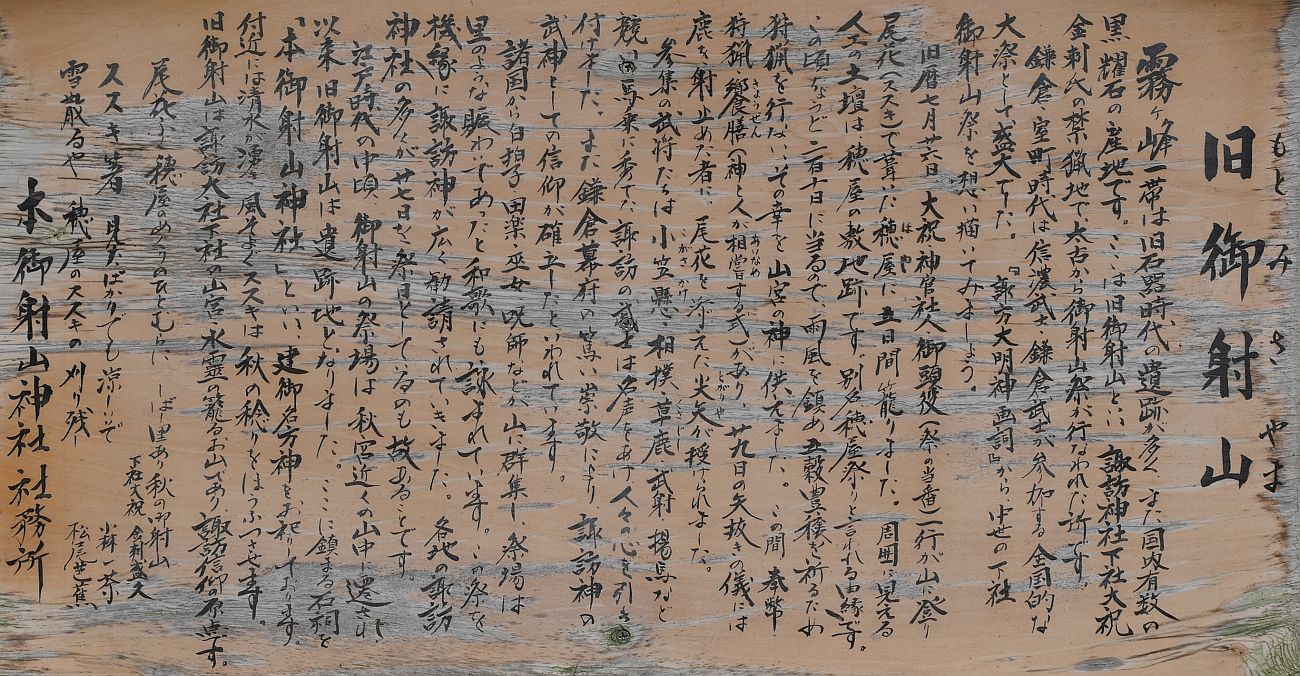 旧御射山
もと み さ やま
霧ヶ峰一帯は旧石器時代の遺跡が多く、また国内有数の
黒耀石の産地です。ここは旧御射山といい、諏訪神社下社大祝
金刺氏の禁猟地で、太古から御射山祭が行なわれた所です。
鎌倉、室町時代は信濃武士、鎌倉武士が参加する全国的な
大祭として盛大でした。『諏方大明神画詞』から、中世の下社
御射山祭を想い描いてみましょう。
旧暦七月廿六日 大祝神官社人御頭役(祭の当番)一行が山に登り
尾花(ススキ)で葺いた穂屋に五日間籠りました。周囲に見える
ほや
人工の土壇は穂屋の敷地跡です。別名穂屋祭りと言われる由縁です。
この頃はちょうど二百十日に当るので、雨風を鎮め五穀豊穣を祈るため
狩猟を行ない、その幸を山宮の神に供えました。この間 奉幣・
狩猟・饗膳(神と人が相嘗す式)があり、廿九日の矢抜きの儀には
きょうぜん
あいなめ
鹿を射止めた者に、尾花を添えた尖矢が授けられました。
参集の武将たちは小笠懸・相撲・草鹿・武射・揚馬など
こがさかけ
競い、馬乗に秀でた諏訪の武士は名声をあげ人々の心を引き
付けました。また鎌倉幕府の篤い崇敬により 諏訪神の
武神としての信仰が確立したといわれています。
諸国から白拍子・田楽・巫女・呪師などが山に群集し、祭場は
里のような賑わいであったと和歌にも詠まれています。この祭を
機縁に諏訪神が広く勧請されていきました。各地の諏訪
神社の多くが廿七日を祭日としているのも故あることです。
江戸時代の中頃 御射山の祭場は秋宮近くの山中に遷され
以来旧御射山は遺跡地となりました。ここに鎮まる石祠を
「本御射山神社」といい、建御名方神をお祀りしております。
付近には清水が湧き風そよぐススキは秋の稔りをほうふつさせます。
旧御射山は諏訪大社下社の山宮、水霊の籠るお山であり諏訪信仰の原点です。
尾花ふく穂屋のめぐりのひとむらに しばし里あり秋の御射山
下社大祝 金刺盛久
ススキ箸 見たばかりでも涼しいぞ
小林一茶
雪散るや 穂屋のススキの 刈り残し
松尾芭蕉
本御射山神社社務所